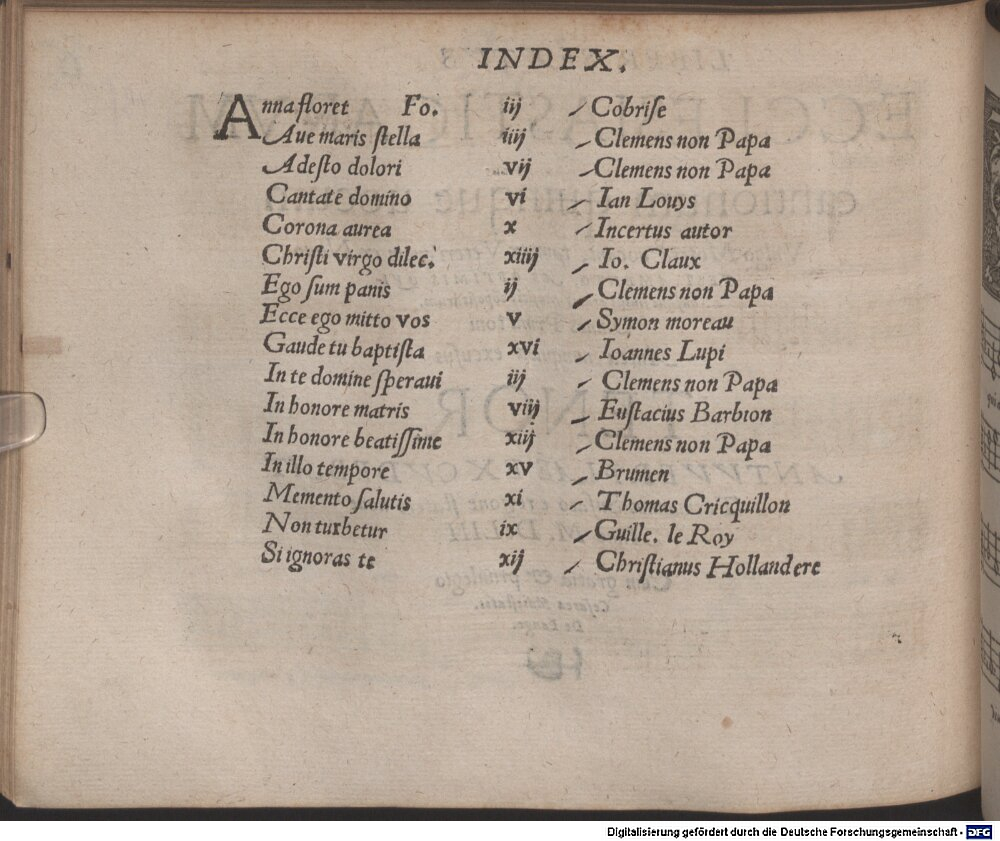 INDEX.
Anna floret Fo. iij Cobrise
Aue maris stella iiij Clemens non Papa
Adesto dolori vij Clemens non Papa
Cantate domino vi Ian Louys
Corona aurea x Incertus autor
Christi virgo dilec. xiiij Io. Claux
Ego sum panis ij Clemens non Papa
Ecce ego mitto vos v Symon moreau
Gaude tu baptista xvi Ioannes Lupi
In te domine speraui iij Clemens non Papa
In honore matris viij Eustacius Barbion
In honore beatissime xiij Clemens non Papa
In illo tempore xv Brumen
Memento salutis xi Thomas Cricquillon
Non turbetur ix Guille. le Roy
Si ignoras te xij Christianus Hollandere
Digitalisierung gefördert durch die Deutsche Forschungsgemeinschaft - DFG